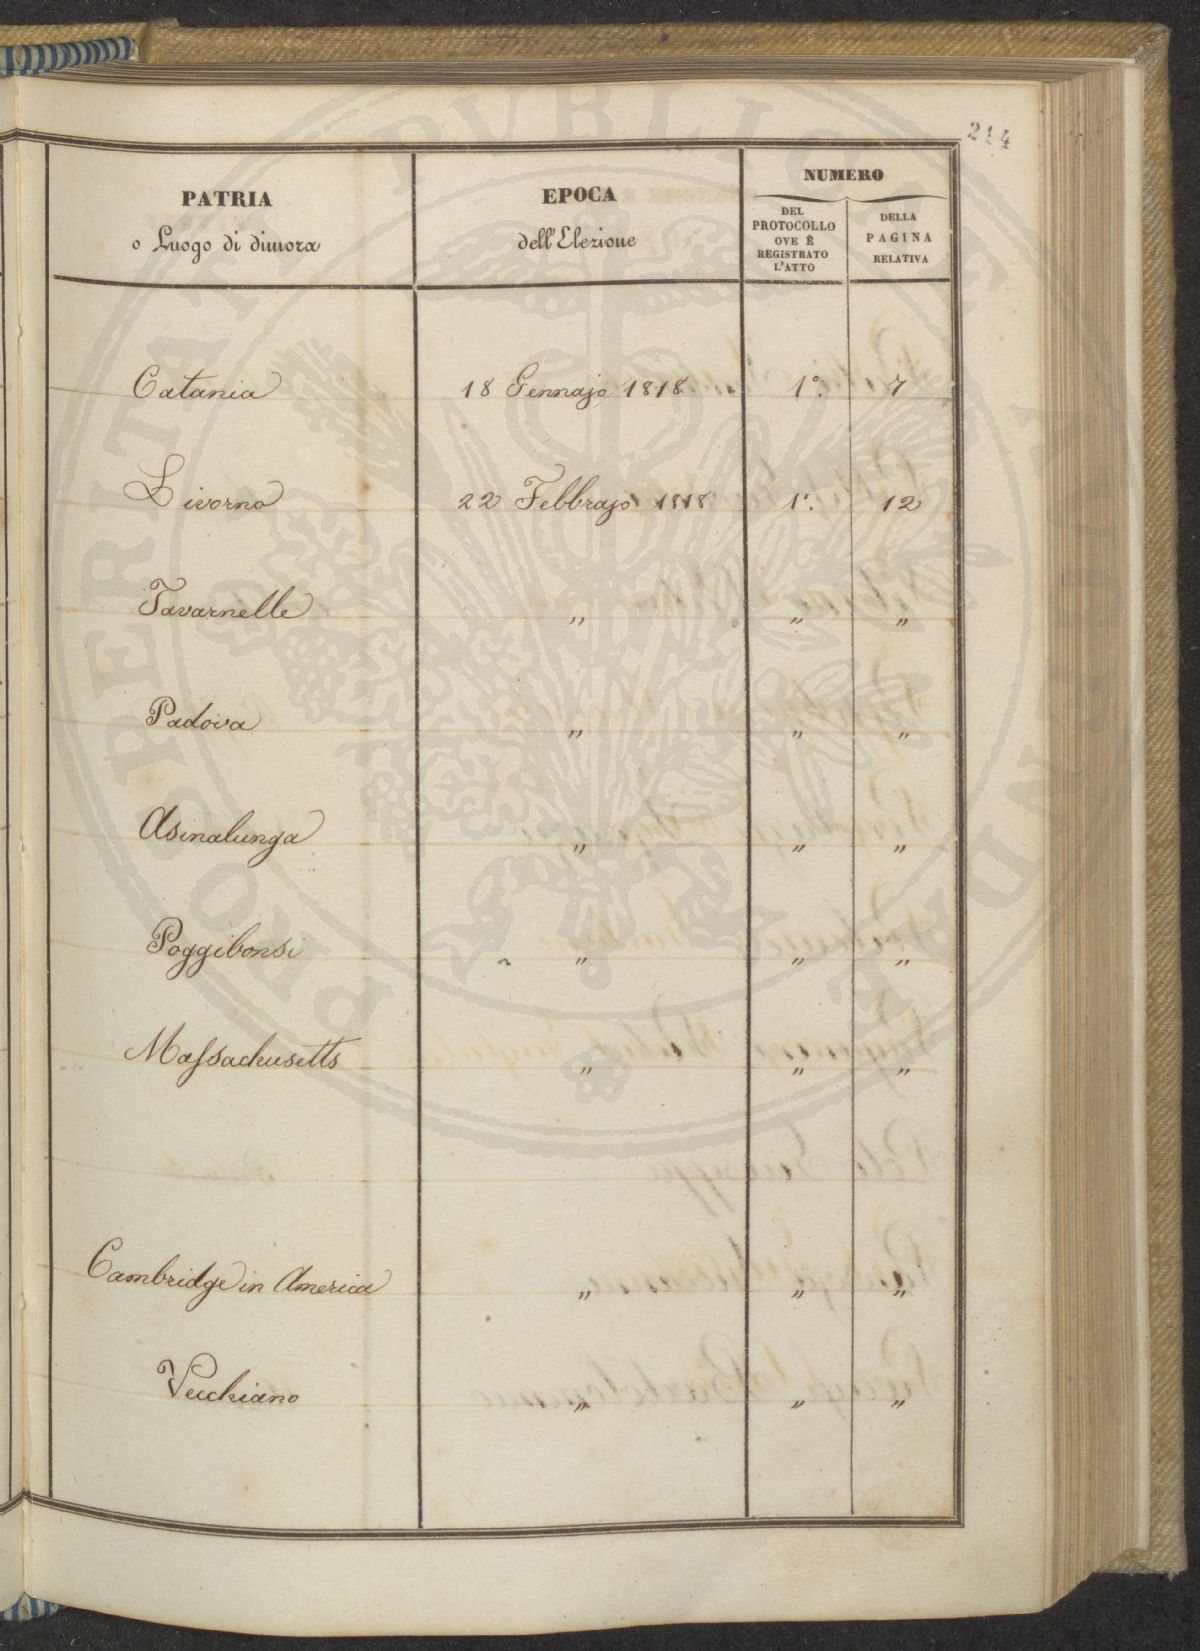 PROSPERITATI PVBLICAE AVGENDAE
214
PATRIA
o Luogo di dimora
EPOCA
dell'Elezione
NUMERO
DEL
PROTOCOLLO
OVE È
REGISTRATO
L'ATTO
DELLA
PAGINA
RELATIVA
Catania 18 Gennajo 1818 1º. 7
Livorno 22 Febbrajo 1818 1º. 12
Tavarnelle „ „ „
Padova „ „ „
Asinalunga „ „ „
Poggibonsi „ „ „
Massachusetts „ „ „
Cambridge in America „ „ „
Vecchiano „ „ „